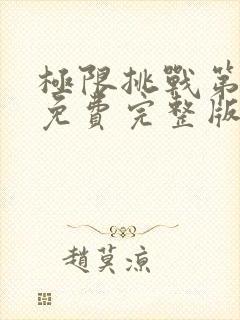 極限挑戰第
免費完整版
趙莫涼